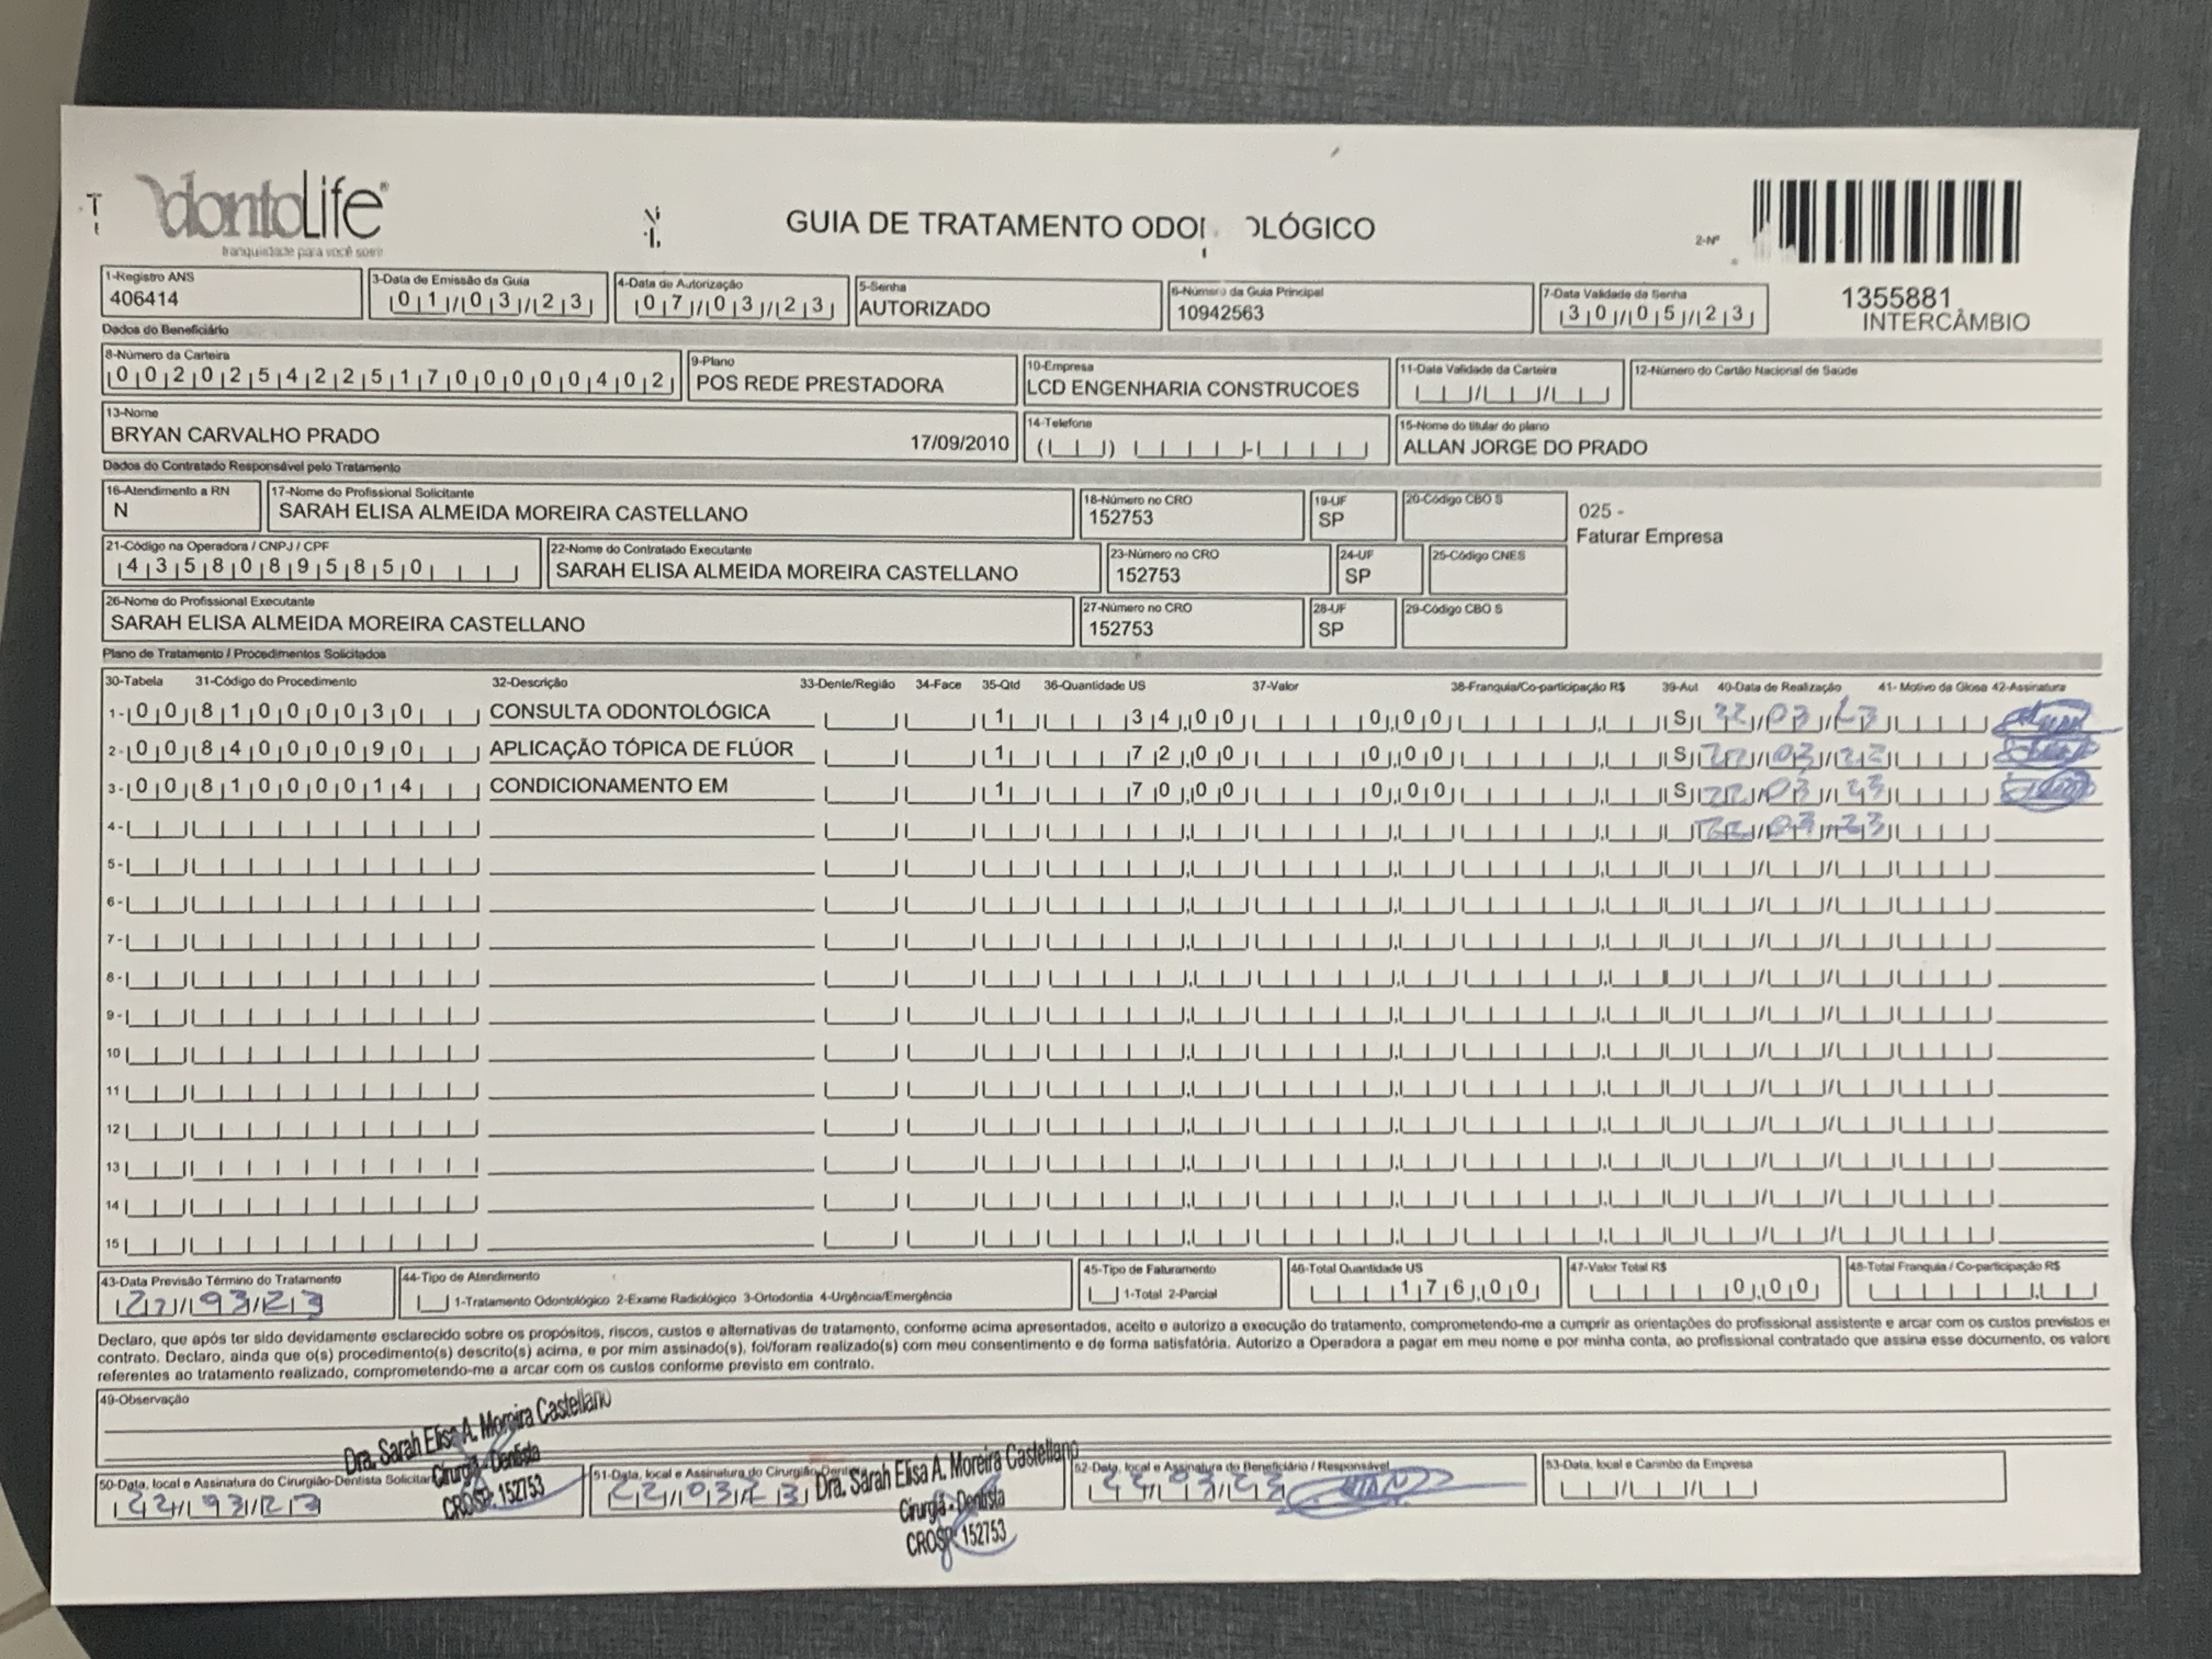 OdontoLife®
tranquilidade para você sorrir
GUIA DE TRATAMENTO ODO OLÓGICO
2-Nº
1355881
INTERCÂMBIO
1-Registro ANS
406414
3-Data de Emissão da Guia
01/03/23
4-Data de Autorização
07/03/23
5-Senha
AUTORIZADO
6-Número da Guia Principal
10942563
7-Data Validade da Senha
30/05/23
Dados do Beneficiário
8-Número da Carteira
00202542251700000402
9-Plano
POS REDE PRESTADORA
10-Empresa
LCD ENGENHARIA CONSTRUCOES
11-Data Validade da Carteira
12-Número do Cartão Nacional de Saúde
13-Nome
BRYAN CARVALHO PRADO 17/09/2010
14-Telefone
15-Nome do titular do plano
ALLAN JORGE DO PRADO
Dados do Contratado Responsável pelo Tratamento
16-Atendimento a RN
N
17-Nome do Profissional Solicitante
SARAH ELISA ALMEIDA MOREIRA CASTELLANO
18-Número no CRO
152753
19-UF
SP
20-Código CBO S
025 -
Faturar Empresa
21-Código na Operadora / CNPJ / CPF
43580895850
22-Nome do Contratado Executante
SARAH ELISA ALMEIDA MOREIRA CASTELLANO
23-Número no CRO
152753
24-UF
SP
25-Código CNES
26-Nome do Profissional Executante
SARAH ELISA ALMEIDA MOREIRA CASTELLANO
27-Número no CRO
152753
28-UF
SP
29-Código CBO S
Plano de Tratamento / Procedimentos Solicitados
30-Tabela 31-Código do Procedimento 32-Descrição 33-Dente/Região 34-Face 35-Qtd 36-Quantidade US 37-Valor 38-Franquia/Co-participação R$ 39-Aut 40-Data de Realização 41- Motivo da Glosa 42-Assinatura
1- 00 81000030 CONSULTA ODONTOLÓGICA 1 34,00 0,00 S 22/03/23
2- 00 84000090 APLICAÇÃO TÓPICA DE FLÚOR 1 72,00 0,00 S 22/03/23
3- 00 81000014 CONDICIONAMENTO EM 1 70,00 0,00 S 22/03/23
4- 22/03/23
5-
6-
7-
8-
9-
10
11
12
13
14
15
43-Data Previsão Término do Tratamento
22/93/23
44-Tipo de Atendimento
1-Tratamento Odontológico 2-Exame Radiológico 3-Ortodontia 4-Urgência/Emergência
45-Tipo de Faturamento
1-Total 2-Parcial
46-Total Quantidade US
176,00
47-Valor Total R$
0,00
48-Total Franquia / Co-participação R$
Declaro, que após ter sido devidamente esclarecido sobre os propósitos, riscos, custos e alternativas de tratamento, conforme acima apresentados, aceito e autorizo a execução do tratamento, comprometendo-me a cumprir as orientações do profissional assistente e arcar com os custos previstos e
contrato. Declaro, ainda que o(s) procedimento(s) descrito(s) acima, e por mim assinado(s), foi/foram realizado(s) com meu consentimento e de forma satisfatória. Autorizo a Operadora a pagar em meu nome e por minha conta, ao profissional contratado que assina esse documento, os valore
referentes ao tratamento realizado, comprometendo-me a arcar com os custos conforme previsto em contrato.
49-Observação
Dra. Sarah Elisa A. Moreira Castellano
Cirurgiã - Dentista
CROSP: 152753
50-Data, local e Assinatura do Cirurgião-Dentista Solicitan
22/93/23
51-Data, local e Assinatura do Cirurgião-Dentis
22/03/23
Dra. Sarah Elisa A. Moreira Castellano
Cirurgiã - Dentista
CROSP: 152753
52-Data, local e Assinatura do Beneficiário / Responsável
22/03/23
53-Data, local e Carimbo da Empresa